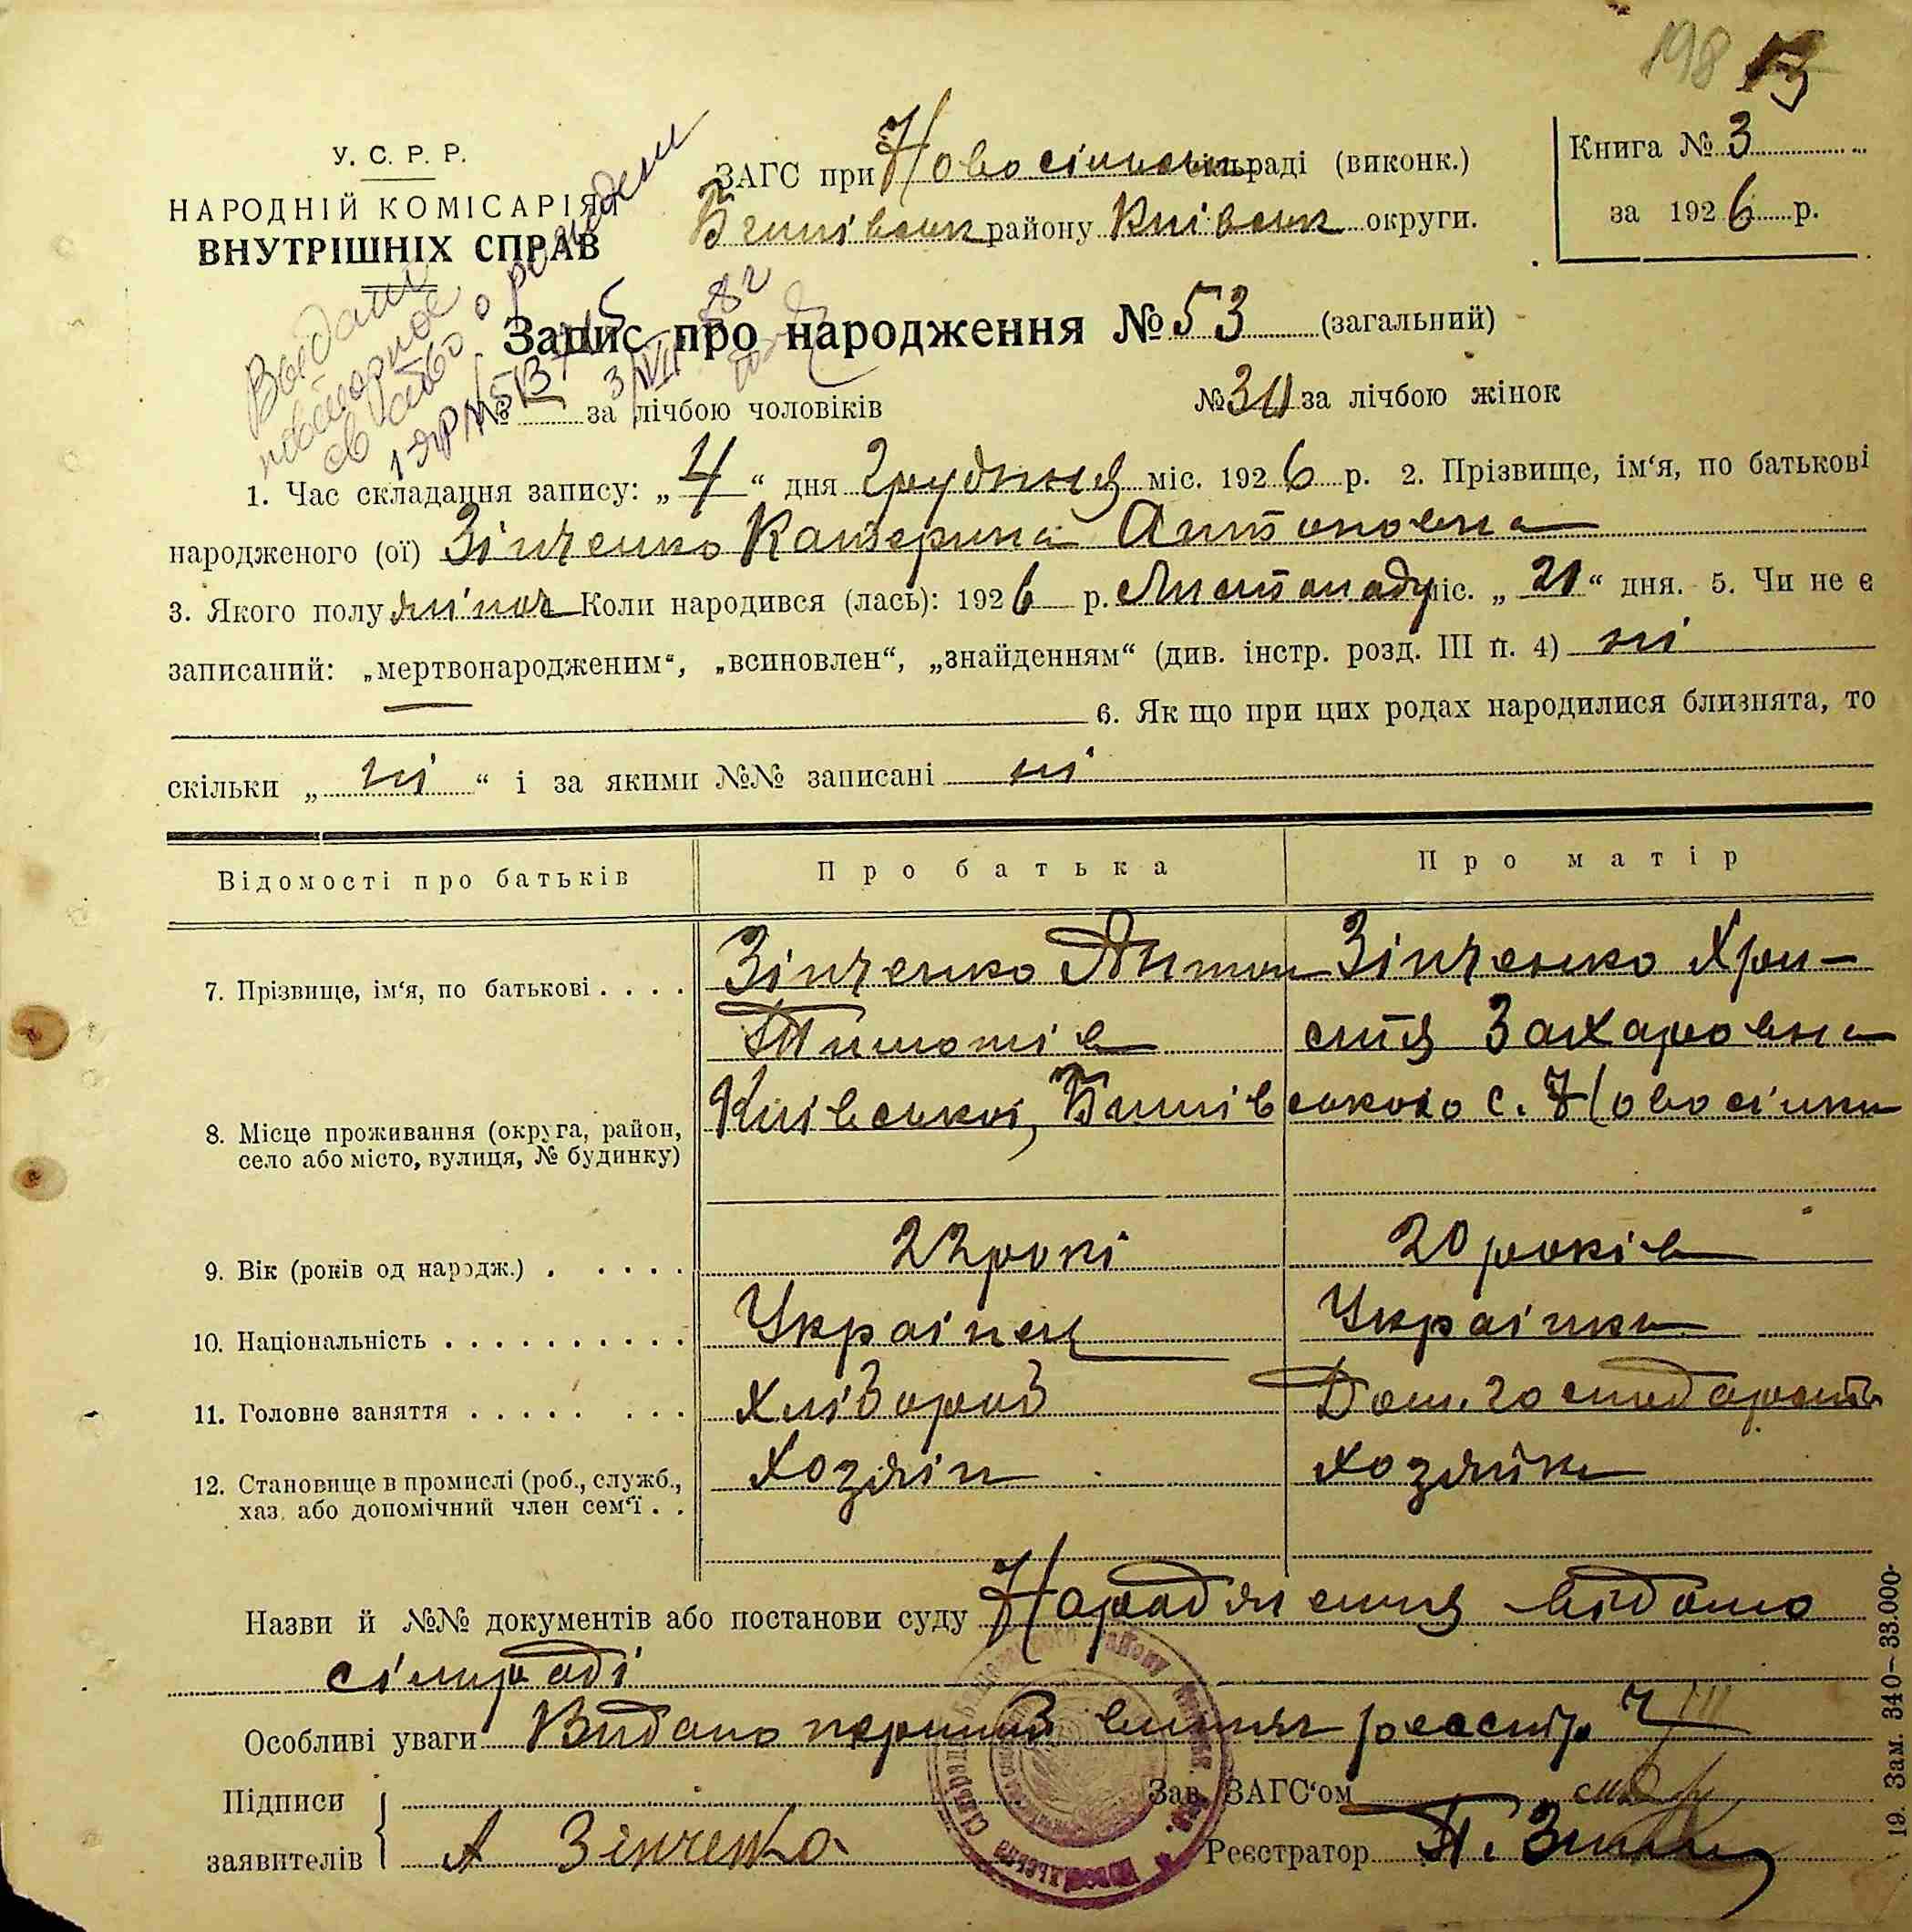 198 13
У. С. Р. Р.
НАРОДНІЙ КОМІСАРІЯТ
ВНУТРІШНІХ СПРАВ
ЗАГС при Новосільськ сільраді (виконк.)
району Київськ округи.
Книга № 3
за 1926 р.
Видано
повторное
св-ство о рождении
3/VII 58г
Запис про народження № 53 (загальний)
№ за лічбою чоловіків
№ за лічбою жінок
1. Час складання запису: „4“ дня Грудня міс. 1926 р. 2. Прізвище, ім'я, по батькові
народженого (ої) Зінченко Катерина Антоновна
3. Якого полу жіноч Коли народився (лась): 1926 р. Листопаду міс. „21“ дня. 5. Чи не є
записаний: „мертвонародженим“, „всиновлен“, „знайденням“ (див. інстр. розд. III п. 4) ні
6. Як що при цих родах народилися близнята, то
скільки „ні“ і за якими №№ записані ні
Відомості про батьків Про батька Про матір
7. Прізвище, ім'я, по батькові . . . . Зінченко Антон Зінченко Хри-
Тимотів стя Захаровна
8. Місце проживання (округа, район, Київської, Бишівського с. Новосілки
село або місто, вулиця, № будинку)
9. Вік (років од народж.) . . . . . 22 рокі 20 років
10. Національність . . . . . . . . . . Украінец Украінка
11. Головне заняття . . . . . . . . Хлібороб Дом. господарств
12. Становище в промислі (роб., служб., Хозяін Хозяйка
хаз. або допомічний член сем'ї . .
Назви й №№ документів або постанови суду Народження видано
сільраді
Особливі уваги Видано перший витяг реєстр
Підписи Зав. ЗАГС'ом
заявителів А Зінченко Реєстратор П.
19. Зам. 340—33.000-